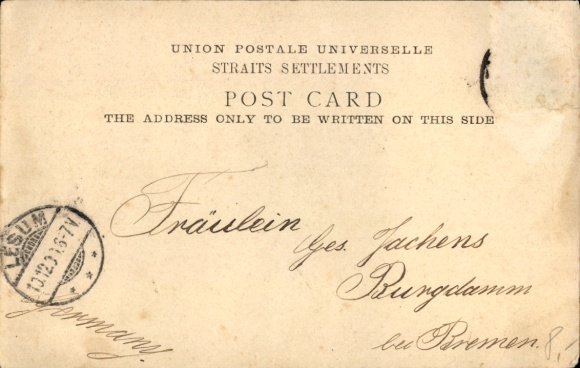 UNION POSTALE UNIVERSELLE
STRAITS SETTLEMENTS
POST CARD
THE ADDRESS ONLY TO BE WRITTEN ON THIS SIDE
Fräulein
Ges. Jachens
Burgdamm
bei Bremen.
Germany.
LESUM
8,